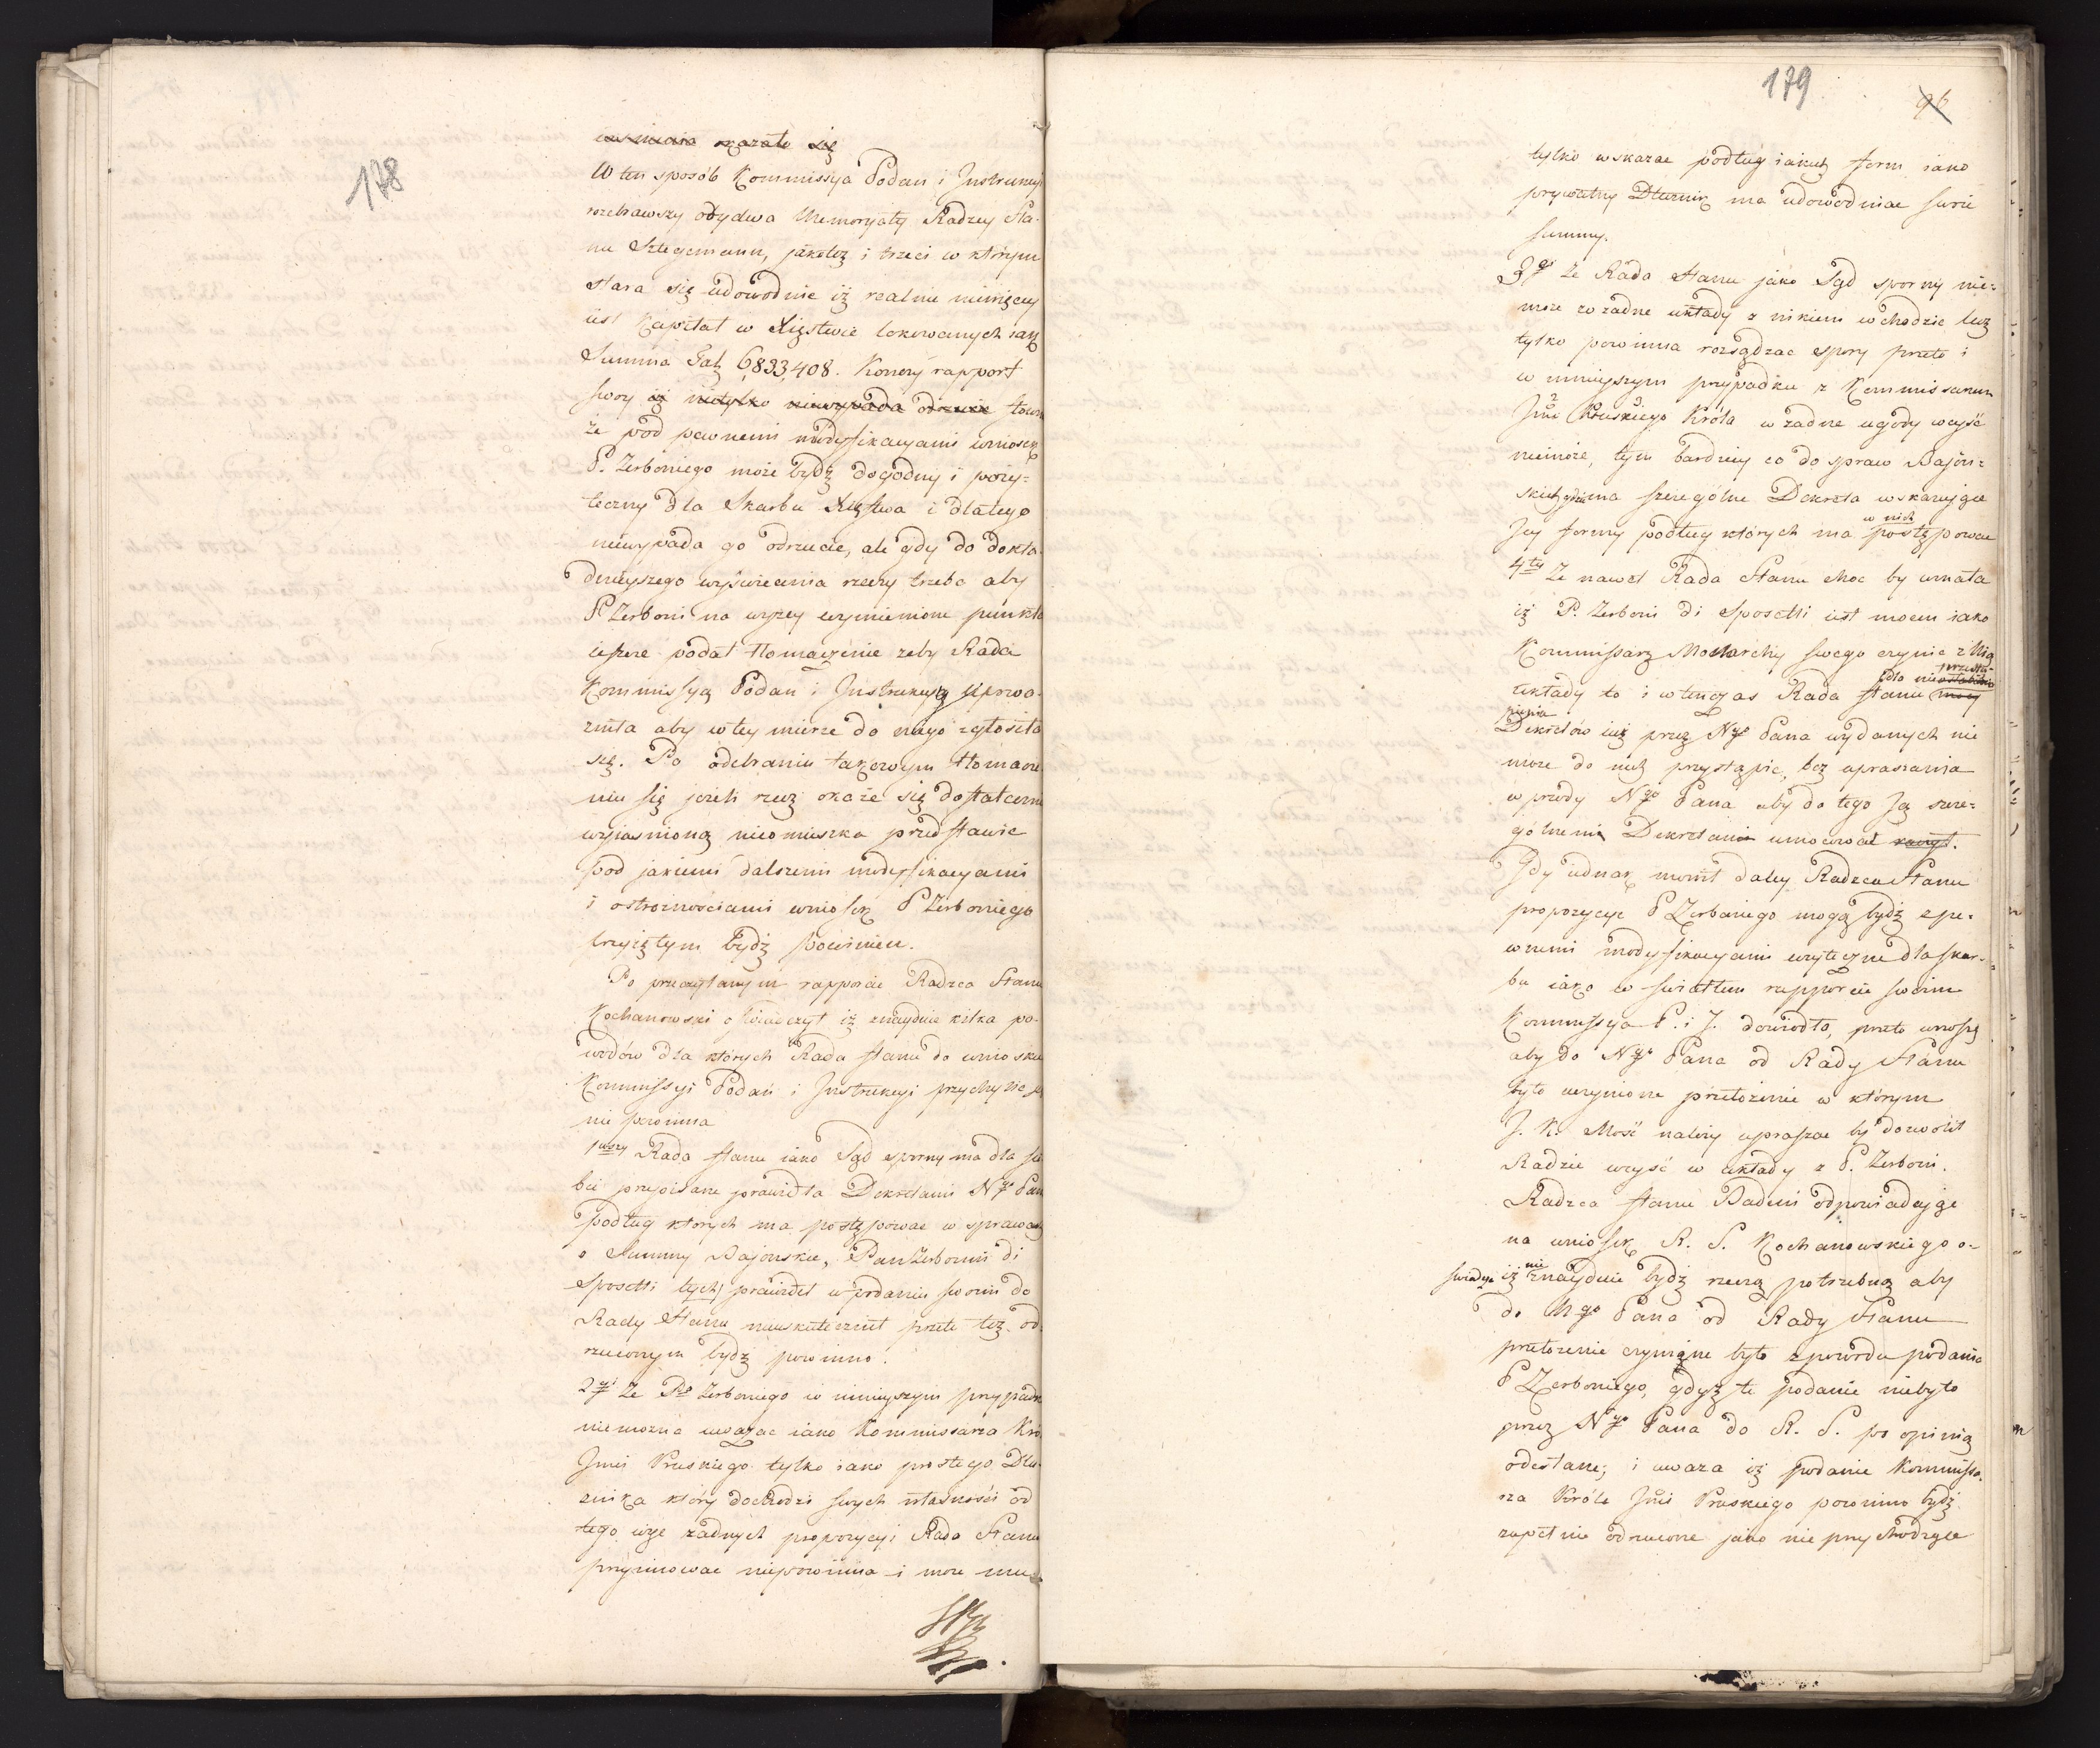 178
okazało się
W ten sposób Kommissya Podań i Instrukcyi
rozebrawszy obydwa Memoryały Radzcy Sta-
nu Sztegemann, jakoteż i trzeci w którym
stara się udowodnić iż realnie niewięcey
iest Kapitał w Xięstwie lokowanych iak
Summa Tal. 6,833,408. Kończy rapport
swoy iż nietylko niewypada odrzucić
że pod pewnemi modyfikacyami wniosek
P. Zerboniego może bydź dogodny i poży-
teczny dla Skarbu Xięstwa i dlatego
niewypada go odrzucić, ale gdy do dokła-
dnieyszego wyświecenia rzeczy trzeba aby
P Zerboni na wyżey wymienione punkta
ieszcze podał tłomaczenie żeby Rada
Kommissyą Podań i Instrukcyą upowa-
żniła aby w tey mierze do niego zgłosiła
się. Po odebraniu takowym tłomacze-
niu się jeżeli rzecz okaże się dostatecznie
wyiaśnioną nieomieszka przedstawić
pod jakiemi dalszemi modyfikacyami
i ostrożnościami wniosek P Zerboniego
przyiętym bydź powinien.
Po przeczytanym rapporcie Radzca Stanu
Kochanowski oświadczył iż znayduie kilka po-
wodów dla których Rada Stanu do wniosku
Kommissyi Podań i Instrukcyi przychylić się
nie powinna
1wszy Rada Stanu iako Sąd sporny ma dla sie-
bie przepisane prawidła Dekretami Nygo Pana
podług których ma postępować w sprawach
o Summy Bajońskie, Pan Zerboni di
Sposetti tych prawideł w podaniu swoim do
Rady Stanu nieuskutecznił przeto też od-
rzuconym bydź powinno.
2gi Że Pa Zerboniego w ninieyszym przypadku
niemożna uważać iako Kommissarza Kró
Jmci Pruskiego tylko iako prostego Dłu-
żnika który dochodzi swych własności od
tego więc żadnych propozycyi Rada Stanu
przyimować niepowinna i może mu
179
96
tylko wskazać podług iakich form iako
prywatny Dłużnik ma udowodniać swoie
summy.
3ci Że Rada Stanu jako Sąd sporny nie-
może w żadne układy z nikiem wchodzić lecz
tylko powinna rozsądzać spory przeto i
w ninieyszym przypadku z Kommissarzem
Jmci Pruskiego Króla w żadne ugody weyść
niemoże, tym bardziey co do spraw Bajoń-
skich gdzie ma szczególne Dekreta wskazujące
Jey formy podług których ma w nich postępować
4ty Że nawet Rada Stanu choć by uznała
iż P. Zerboni di Sposetti iest mocen iako
Kommissarz Monarchy swego czynić z Nią
układy to i wtenczas Rada Stanu dla nieprzestą-
pienia
Dekretów iuż przez Nygo Pana wydanych nie
może do nich przystąpić, bez uproszenia
wprzody Nygo Pana aby do tego Ją szcze-
gólnemi Dekretami umocował.
Gdy iednak mówił daley Radzca Stanu
propozycye P Zerboniego mogą bydź z pe-
wnemi modyfikacyami użyteczne dla skar-
bu iako w światłem rapporcie swoim
Kommissya P. i J. dowiodła, przeto wnoszę
aby do Nygo Pana od Rady Stanu
było uczynione przełożenie w którym
J. K. Mość należy upraszać by dozwolił
Radzie weyść w układy z P. Zerboni.
Radzca Stanu Badeni odpowiadając
na wniosek R. S. Kochanowskiego o-
świadcza iż nie znayduie bydź rzeczą potrzebną aby
do Nygo Pana od Rady Stanu
przełożenie czynione było z powodu podania
P Zerboniego, gdyż te podanie niebyło
przez Nygo Pana do R. S. po opinią
odesłane; i uważa iż podanie Kommissa-
rza Króla Jmci Pruskiego powinno bydź
zupełnie odrzucone jako nie przychodzące